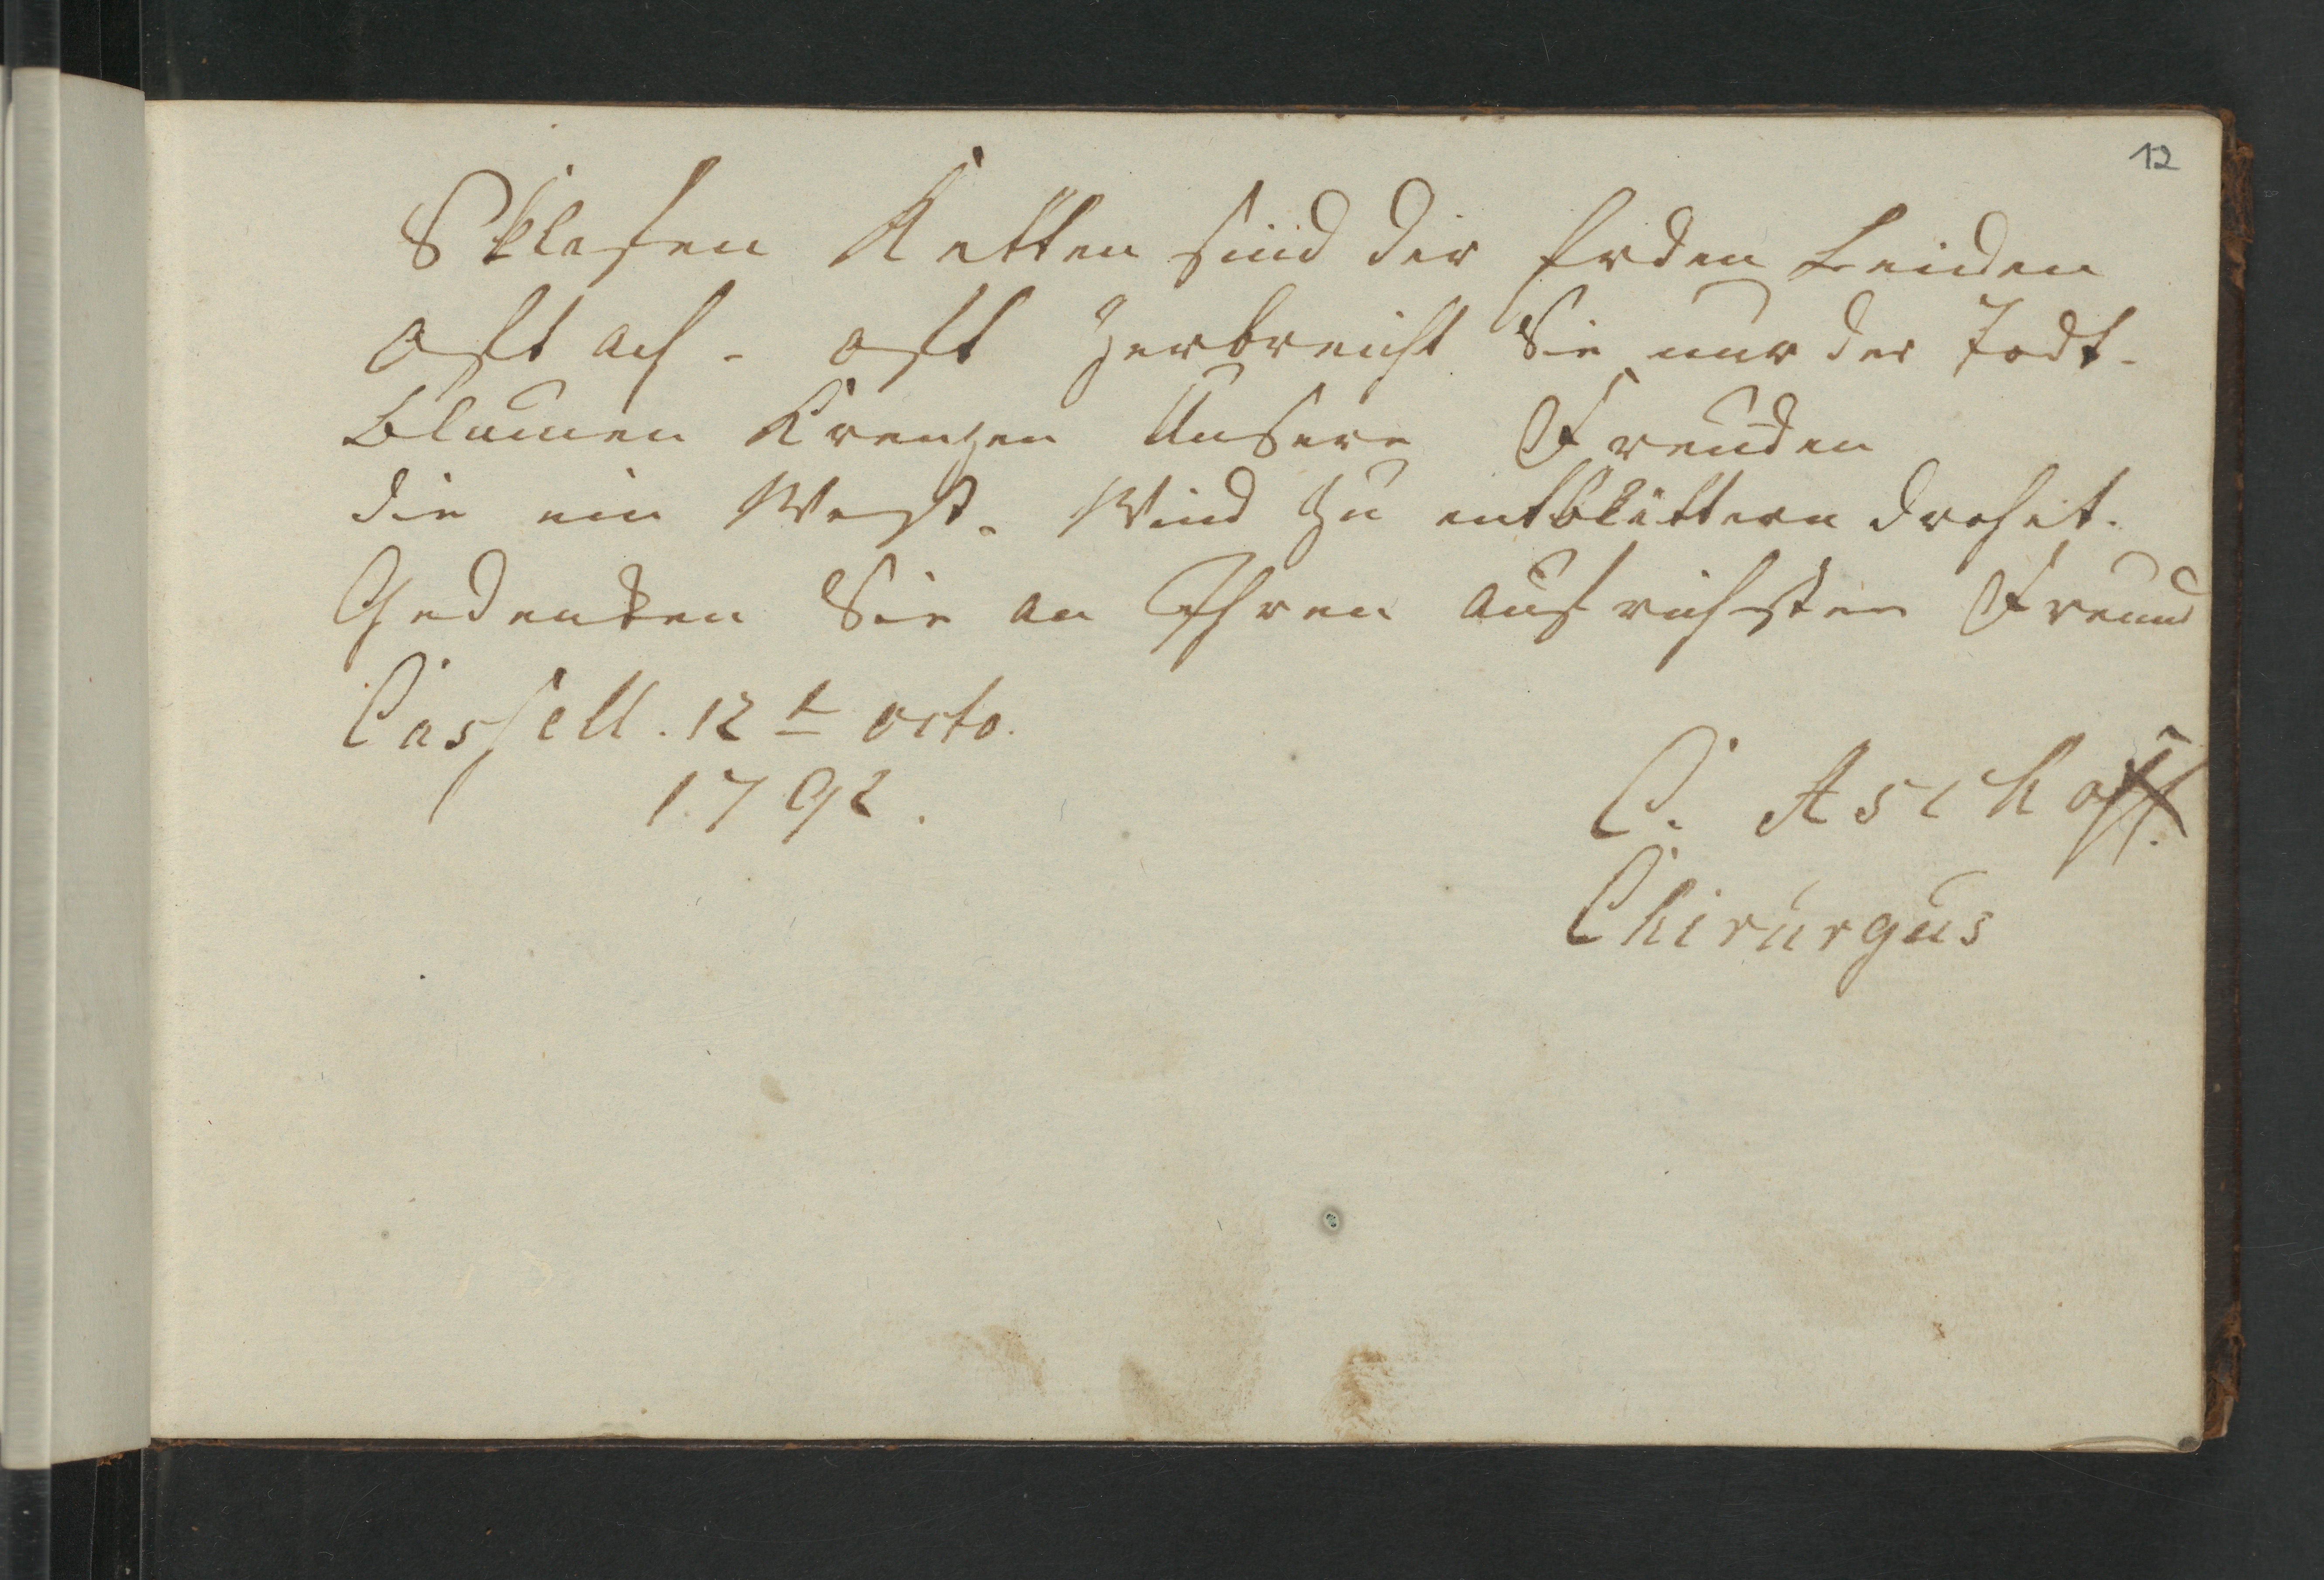 12
Sklafen Ketten sind der Erden Leiden
Oft ach - oft Zerbreicht Sie nur der Todt.
Blumen Krenzen Unsere Freuden
die ein West. Wind zu entblettern drohet.
Gedenken Sie an Ihren aufrichsten Freund
Cassell. 12t octo.
1792.
C. Aschoff.
Chirurgus